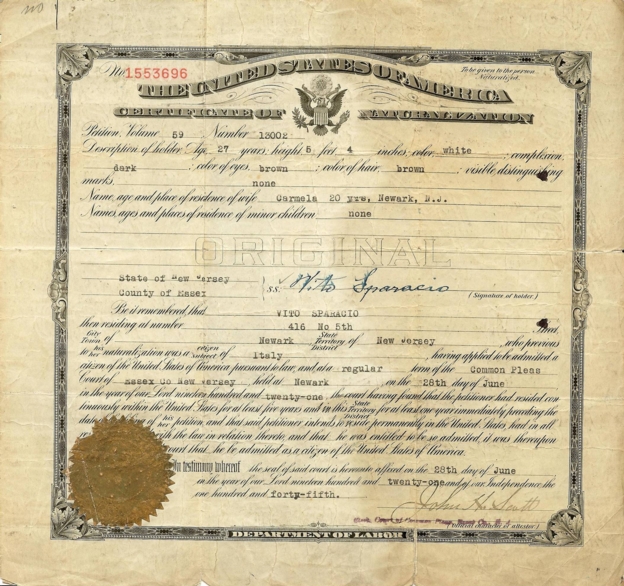 No. 1553696
To be given to the person Naturalized.
THE UNITED STATES OF AMERICA
CERTIFICATE OF NATURALIZATION
Petition, Volume 59 Number 13002
Description of holder: Age, 27 years; height, 5 feet 4 inches; color, white; complexion,
dark; color of eyes, brown; color of hair, brown; visible distinguishing
marks, none
Name, age and place of residence of wife Carmela 20 yrs, Newark, N.J.
Names, ages and places of residence of minor children none
ORIGINAL
State of New Jersey
County of Essex
S.S.
Vito Sparacio
(Signature of holder)
Be it remembered, that VITO SPARACIO
then residing at number 416 No 5th Street,
City Town of Newark State Territory of District New Jersey, who previous
to his her naturalization was a citizen subject of Italy, having applied to be admitted a
citizen of the United States of America pursuant to law, and at a regular term of the Common Pleas
Court of Essex Co New Jersey held at Newark on the 28th day of June
in the year of our Lord nineteen hundred and twenty-one the court having found that the petitioner had resided con-
tinuously within the United States for at least five years and in this State Territory District for at least one year immediately preceding the
date of his her petition, and that said petitioner intends to reside permanently in the United States, had in all
with the law in relation thereto, and that he was entitled to be so admitted, it was thereupon
court that he be admitted as a citizen of the United States of America.
In testimony whereof the seal of said court is hereunto affixed on the 28th day of June
in the year of our Lord nineteen hundred and twenty-one and of our Independence the
one hundred and forty-fifth.
John H. Scott
(Official character of attestor)
DEPARTMENT OF LABOR